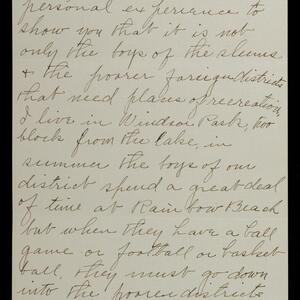 personal experience to
show you that it is not
only the boys of the slums
& the poorer foreign districts
that need places of recreation,
I live in Windsor Park, two
block from the lake, in
summer the boys of our
district spend a great deal
of time at Rainbow Beach
but when they have a ball
game or football or basket
ball, they must go down
into the poorer districts